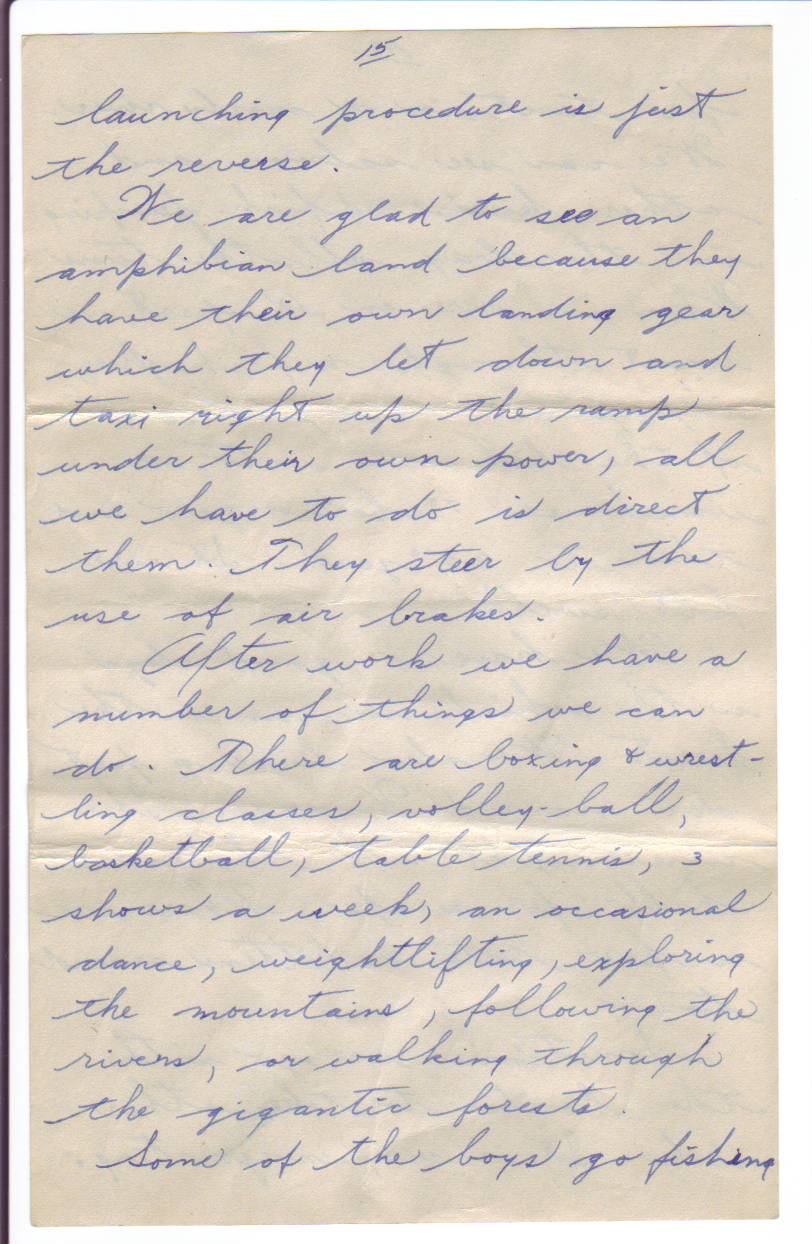 15
launching procedure is just
the reverse.
We are glad to see an
amphibian land because they
have their own landing gear
which they let down and
taxi right up the ramp
under their own power, all
we have to do is direct
them. They steer by the
use of air brakes.
After work we have a
number of things we can
do. There are boxing & wrest-
ling classes, volley-ball,
basketball, table tennis, 3
shows a week, an occasional
dance, weightlifting, exploring
the mountains, following the
rivers, or walking through
the gigantic forests.
Some of the boys go fishing